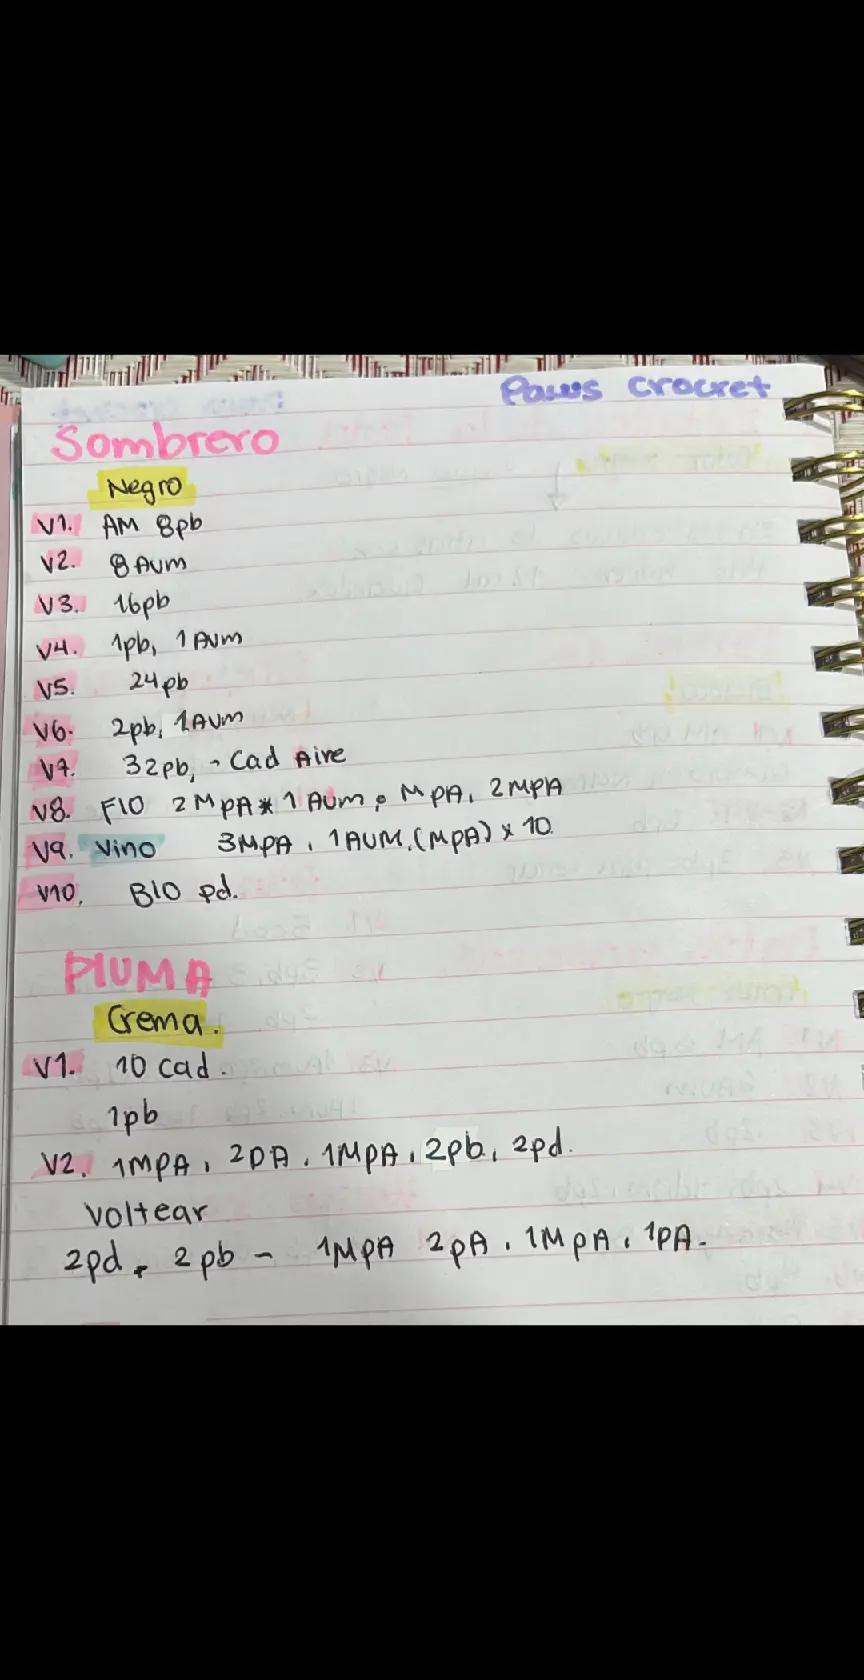 Paws crocret
Sombrero
Negro
V1. AM 8pb
V2. 8 Aum
V3. 16pb
V4. 1pb, 1 Aum
V5. 24pb
V6. 2pb, 1Aum
V7. 32pb, - Cad Aire
V8. F10 2MpA * 1 Aum, MpA, 2MPA
V9. Vino 3MPA, 1AUM, (MPA) x 10.
V10. B10 pd.
PlUMA
Crema.
V1. 10 cad.
1pb
V2. 1MPA, 2PA, 1MPA, 2pb, 2pd.
Voltear
2pd, 2pb - 1MPA 2pA, 1MPA, 1PA.